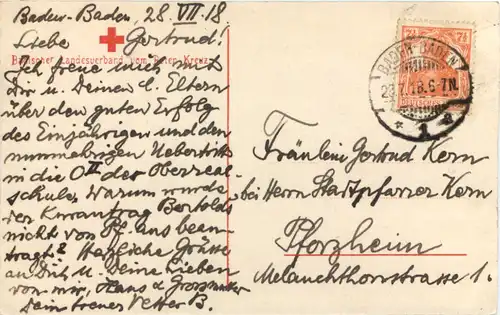 Baden-Baden, 28. VII. 18
Liebe Gertrud!
Badischer Landesverband vom Roten Kreuz
Ich freue mich mit
Dir u. Deinen l. Eltern
über den guten Erfolg
des Einjährigen und den
nunmehrigen Uebertritt
in die O II der Oberreal-
schule. Warum wurde
der Kurantrag Bertolds
nicht von Pf. aus bean-
tragt? Herzliche Grüsse
an Dich u. Deine Lieben
von mir, Hans u. Grossmutter
Dein treuer Vetter B.
7½ 7½
BADEN-BADEN
28.7.18.6-7N.
* 1 a
Fräulein Gertrud Kern
bei Herrn Stadtpfarrer Kern
Pforzheim
Melanchthonstrasse 1.